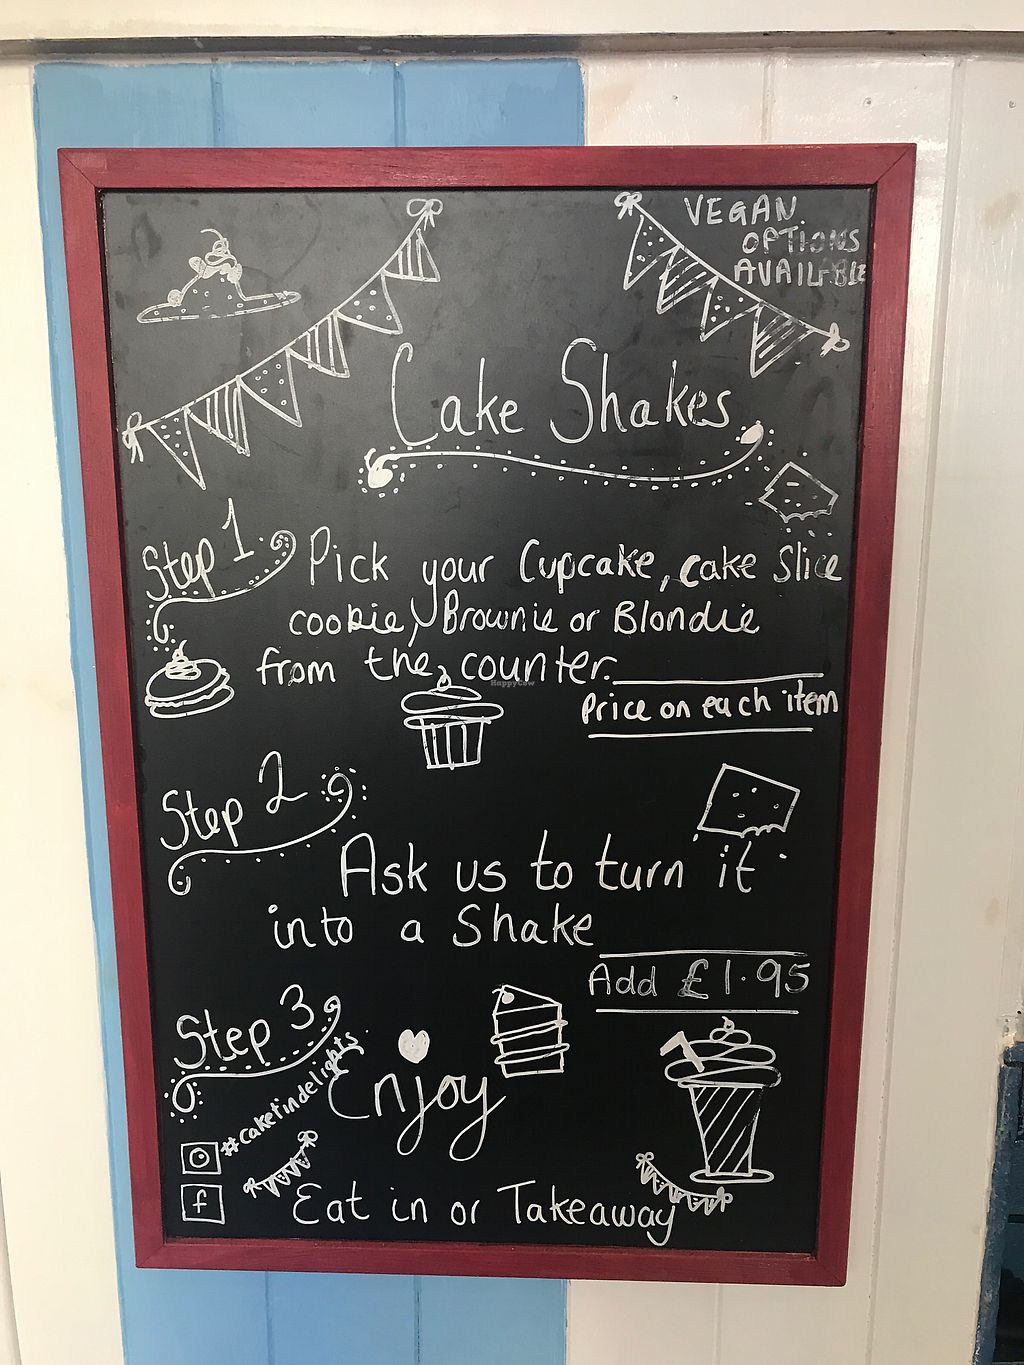 VEGAN
OPTIONS
AVAILABLE
Cake Shakes
Step 1
Pick your Cupcake, cake Slice
cookie, Brownie or Blondie
from the counter.
HappyCow
Price on each item
Step 2
Ask us to turn it
into a Shake
Add £1.95
Step 3
#caketindelights
Enjoy
f
Eat in or Takeaway